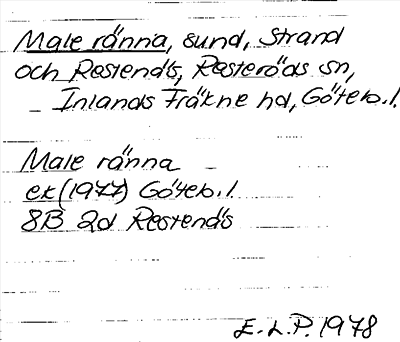 Male ränna, sund, Strand
och Restenäs, Resteröds sn,
Inlands Fräkne hd, Göteb. l.
Male ränna
ek (1977) Göteb. l.
8B 2d Restenäs
E. L. P. 1978